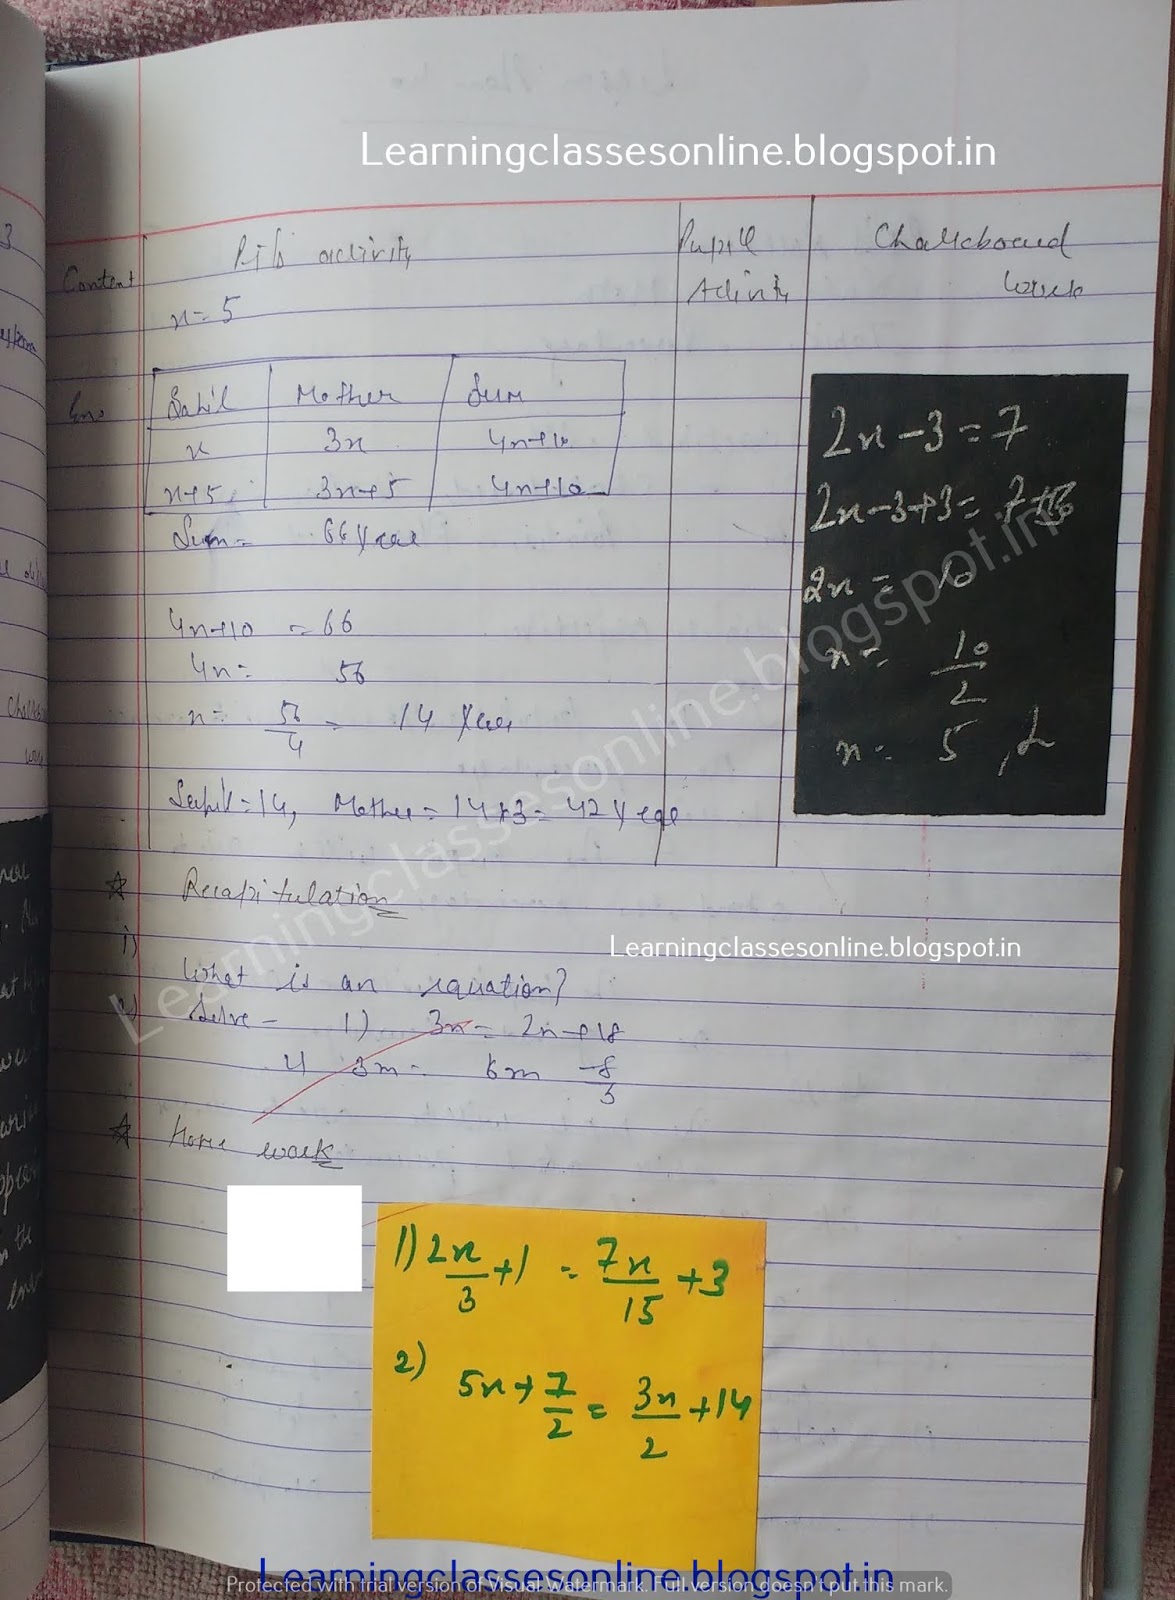 Learningclassesonline.blogspot.in
Content
activity
Pupil
Activity
Chalkboard
work
x = 5
Sahil Mother Sum
x 3x 4x+10
x+5 3x+5 4x+10
Sum = 66 Year
4x+10 = 66
4x = 56
x = 56/4 = 14 Year
Sahil = 14, Mother = 14×3 = 42 Year
2x - 3 = 7
2x - 3 + 3 = 7 + 3
2x = 10
x = 10/2
x = 5
Learningclassesonline.blogspot.in
☆ Recapitulation
i)
What is an equation?
Learningclassesonline.blogspot.in
Solve - 1) 3x = 2x + 18
3m = 5m - 8/3
☆ Home work
1) 2x/3 + 1 = 7x/15 + 3
2) 5x + 7/2 = 3x/2 + 14
Learningclassesonline.blogspot.in
Protected with trial version of Visual Watermark. Full version doesn't put this mark.